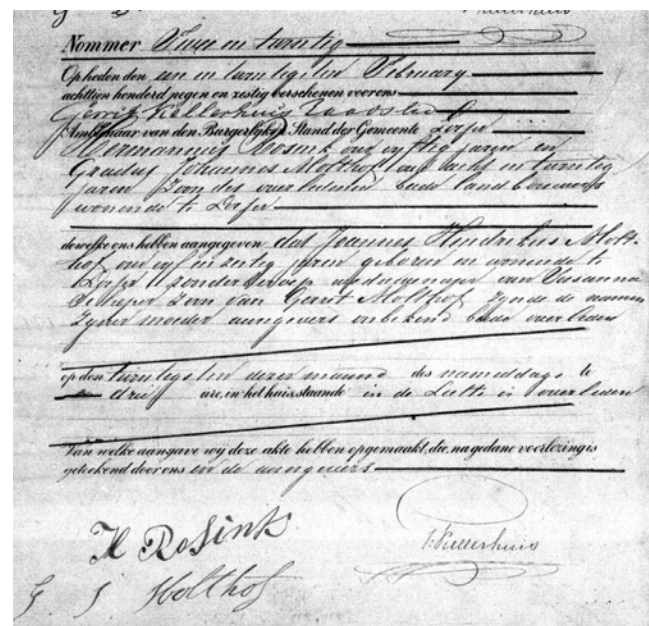 Nommer Twee en twintig
Op heden den een en twintigsten February
achttien honderd negen en zestig verschenen voor ons
Gerrit Kellerhuis
Ambtenaar van den Burgerlijken Stand der Gemeente Losser
Hermannus Rosink oud vyftig jaren en
Gradus Johannes Molthof oud acht en twintig
jaren Zoon des overledenen beide landbouwers
wonende te Losser
dewelke ons hebben aangegeven dat Joannes Hendrikus Molt-
hof oud vyf en zestig jaren geboren en wonende te
Losser zonder beroep weduwenaar van Susanna
Schasper Zoon van Gerrit Molthof zynde de namen
zyner moeder aangevers onbekend beide overleden
op den twintigsten dezer maand des namiddags te
drie ure, in het huis, staande in de Lutte is overleden
Van welke aangave wij deze akte hebben opgemaakt, die, na gedane voorlezing is
geteekend door ons en de aangevers
H Rosink
Kellerhuis
G J Molthof